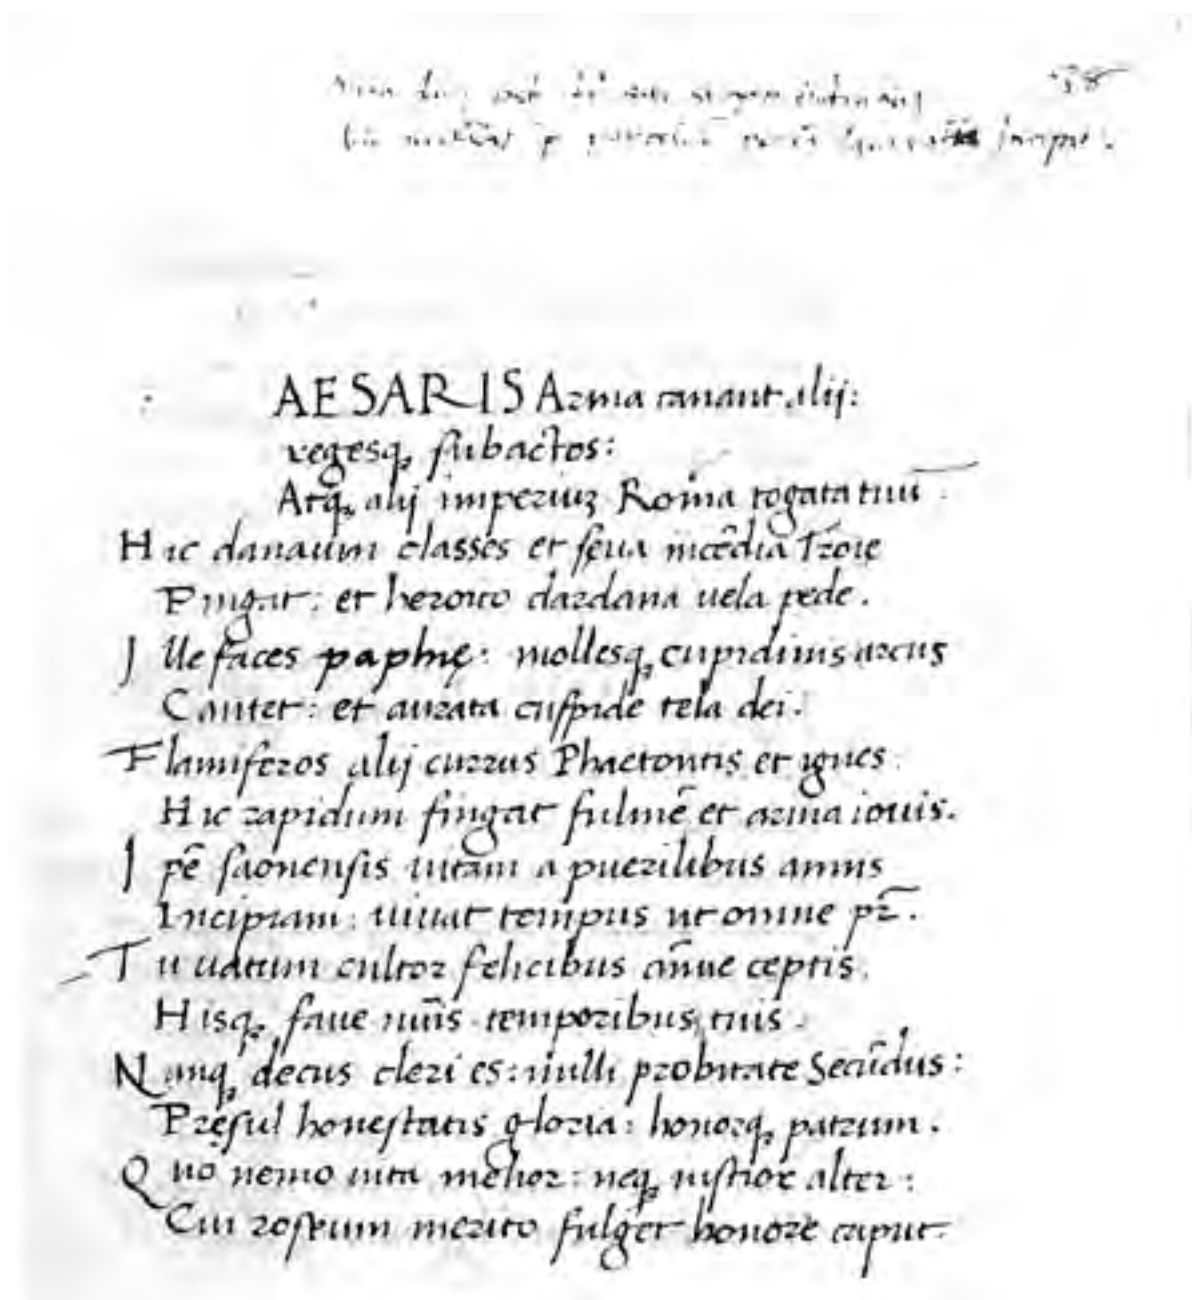 AESARIS Arma canant alij:
regesq; subactos:
Atq; alij imperiuʒ Roma togata tuū.
Hic danaum classes et sęua incēdia Troię
Pingat: et heroico dardana uela pede.
Ille faces paphię: mollesq; cupidinis arcus
Cantet: et aurata cuspide tela dei.
Flamiferos alij currus Phaetontis et ignes.
Hic rapidum fingat fulmē et arma iouis.
I pē saonensis uitam a puerilibus annis
Incipiam: uiuat tempus ut omne pr̄.
Tu uatum cultor felicibus an̄ue ceptis.
Hisq; faue nūīs temporibus tuis.
Nanq; decus cleri es: nulli probitate Secūdus:
Pręsul honestatis gloria: honorq; patrum.
Quo nemo uita melior: neq; iustior alter:
Cui roseum merito fulget honore caput.